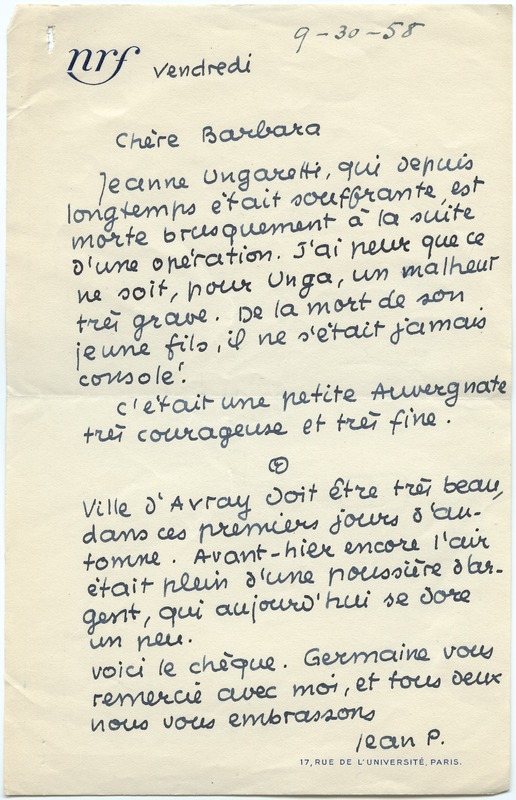 9-30-58
nrf Vendredi
Chère Barbara
Jeanne Ungaretti, qui depuis
longtemps était souffrante, est
morte brusquement à la suite
d'une opération. J'ai peur que ce
ne soit, pour Unga, un malheur
très grave. De la mort de son
jeune fils, il ne s'était jamais
consolé.
C'était une petite Auvergnate
très courageuse et très fine.
Ville d'Avray doit être très beau,
dans ces premiers jours d'au-
tomne. Avant-hier encore l'air
était plein d'une poussière d'ar-
gent, qui aujourd'hui se dore
un peu.
voici le chèque. Germaine vous
remercie avec moi, et tous deux
nous vous embrassons
Jean P.
17, RUE DE L'UNIVERSITÉ, PARIS.